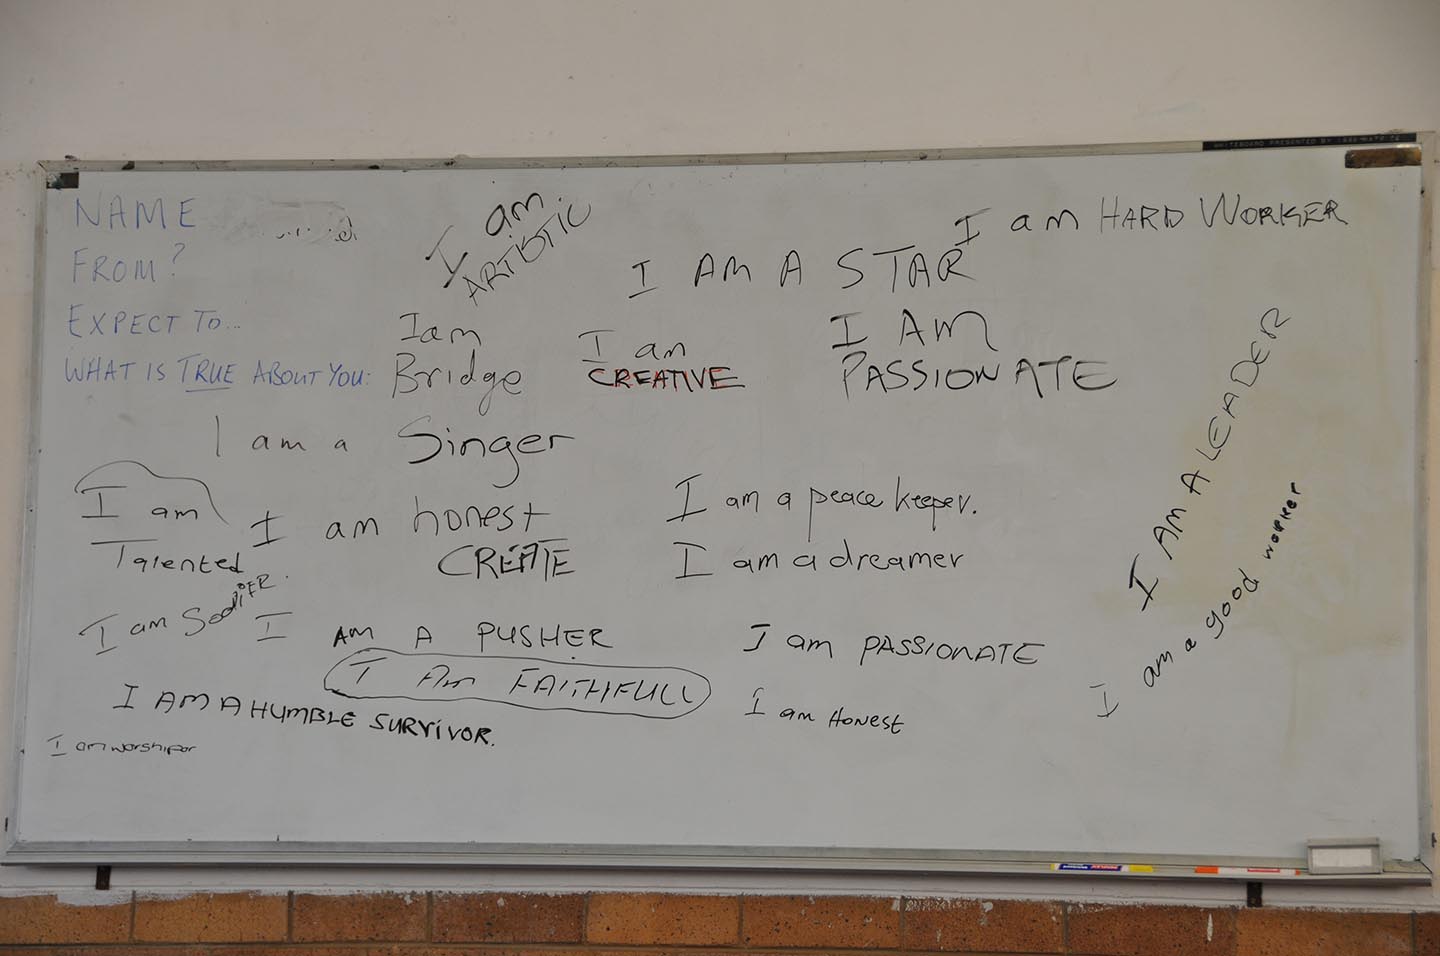 WHITEBOARD PRESENTED BY
NAME
FROM?
EXPECT TO...
WHAT IS TRUE ABOUT YOU:
I am
ARTISTIC
I am HARD WORKER
I AM A STAR
I am
Bridge
I am
CREATIVE
I AM
PASSIONATE
I am a Singer
I am
Talented
I am honest
CREATE
I am a peace keeper.
I am a dreamer
I AM A LEADER
I am a good worker
I am SodiER.
I AM A PUSHER
I am PASSIONATE
I Am FAITHFULL
I AM A HUMBLE SURVIVOR.
I am Honest
I am worshiper